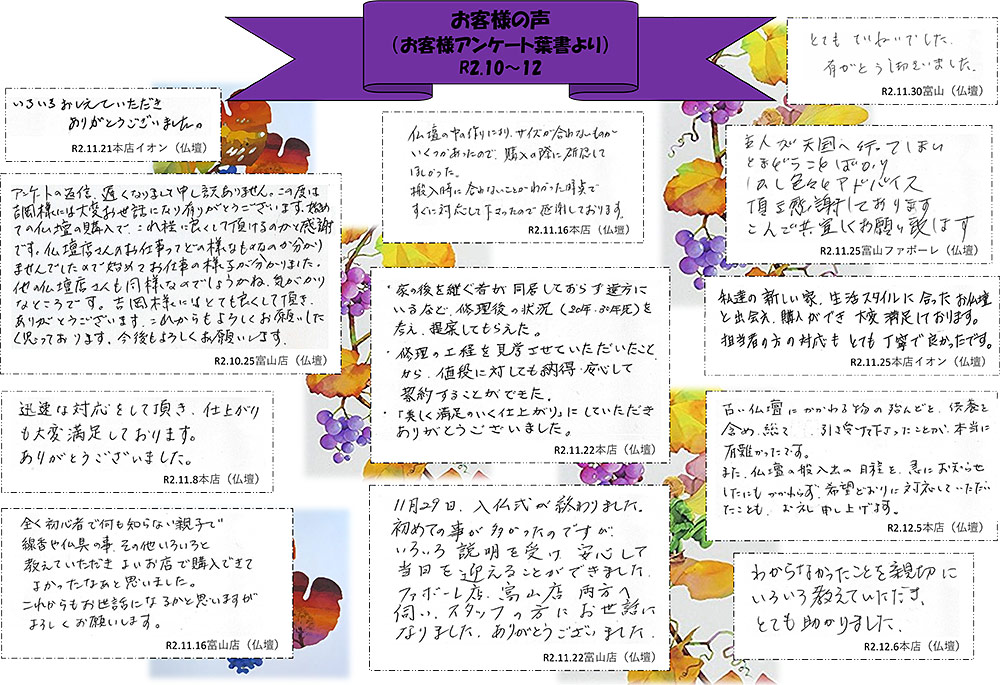 お客様の声
（お客様アンケート葉書より）
R2.10～12
いろいろおしえていただき
ありがとうございました。
R2.11.21本店イオン（仏壇）
アンケートの返信、遅くなりまして申し訳ありません。この度は
吉岡様には大変お世話になり有りがとうございます。初め
ての仏壇の購入で、これ程に良くして頂けるのかと感謝
です。仏壇店さんのお仕事ってどの様なものなのか分かり
ませんでしたので始めてお仕事の様子が分かりました。
他の仏壇店さんも同様なのでしょうかね、気がかり
なところです。吉岡様にはとても良くして頂き、
ありがとうございます。これからもよろしくお願いした
く思っております。今後もよろしくお願いします。
R2.10.25富山店（仏壇）
迅速な対応をして頂き、仕上がり
も大変満足しております。
ありがとうございました。
R2.11.8本店（仏壇）
全く初心者で何も知らない親子で
線香や仏具の事、その他いろいろと
教えていただき よいお店で購入できて
よかったなぁと思いました。
これからもお世話になるかと思いますが
よろしくお願いします。
R2.11.16富山店（仏壇）
仏壇の中の作りにより、サイズが合わないものが
いくつかあったので、購入の際に確認して
ほしかった。
搬入時に合わないことがわかった時点で
すぐに対応して下さったので感謝しております。
R2.11.16本店（仏壇）
・家の後を継ぐ者が同居しておらず遠方に
いるなど、修理後の状況（20年・30年先）を
考え、提案してもらえた。
・修理の工程を見学させていただいたこと
から、値段に対しても納得・安心して
契約することができた。
・「美しく満足のいく仕上がり」にしていただき
ありがとうございました。
R2.11.22本店（仏壇）
11月29日、入仏式が終わりました。
初めての事が多かったのですが、
いろいろ説明を受け、安心して
当日を迎えることができました。
ファボーレ店、富山店 両方へ
伺い、スタッフの方にお世話に
なりました。ありがとうございました。
R2.11.22富山店（仏壇）
とても ていねいでした。
有がとう御ざいました。
R2.11.30富山（仏壇）
主人が天国へ行ってしまい
とまどうことばかり
しかし色々とアドバイス
頂き感謝しております
こんご共宜しくお願い致します
R2.11.25富山ファボーレ（仏壇）
私達の新しい家、生活スタイルに合ったお仏壇
と出会え、購入ができ 大変満足しております。
担当者の方の対応も とても丁寧で良かったです。
R2.11.25本店イオン（仏壇）
古い仏壇にかかわる物の殆んどを、供養を
含め、総て 引き受け下さったことが、本当に
有難かったです。
また、仏壇の搬入出の日程を、急にお知らせ
したにもかかわらず、希望どおりに対応していただい
たことも、お礼申し上げます。
R2.12.5本店（仏壇）
わからなかったことを親切に
いろいろ教えていただき、
とても助かりました。
R2.12.6本店（仏壇）